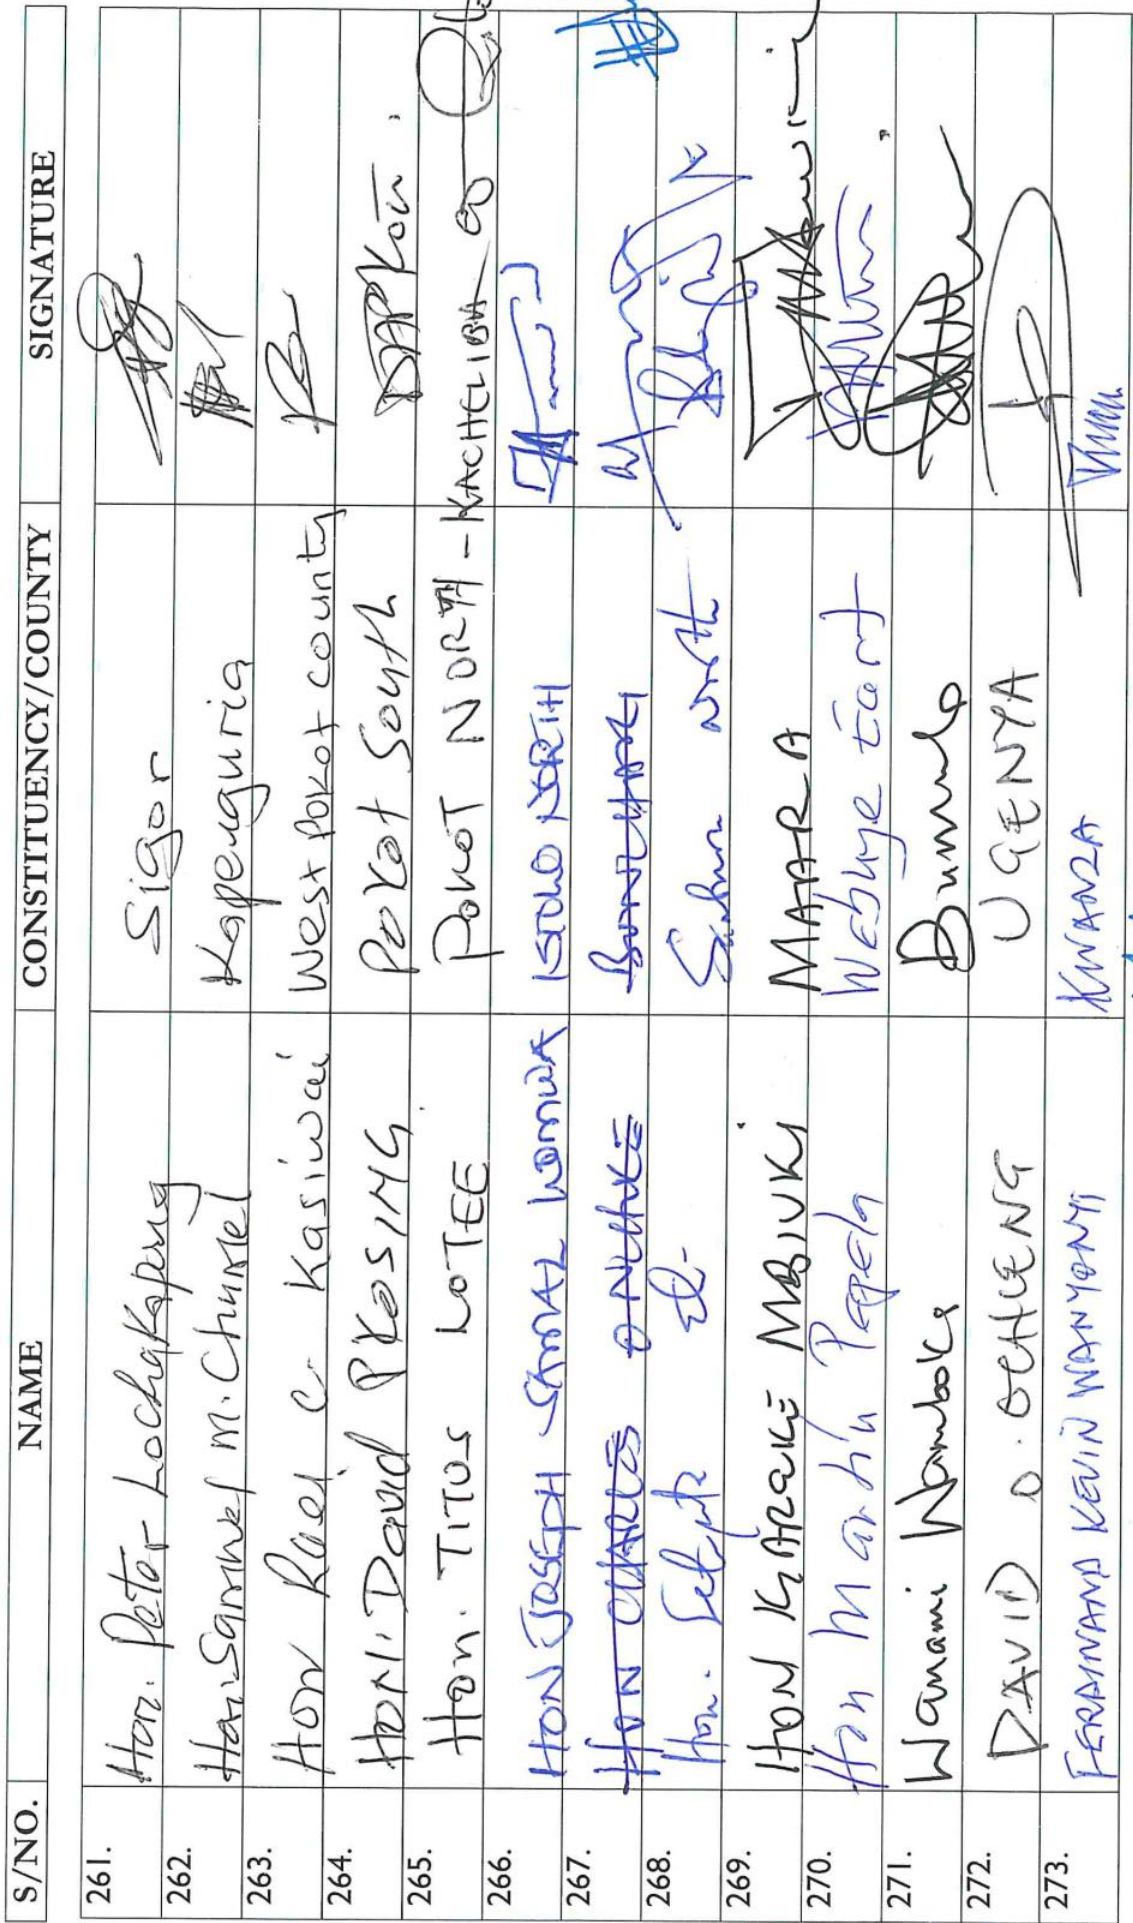 S/NO. NAME CONSTITUENCY/COUNTY SIGNATURE
261. Hon. Peter Lochakapong Sigor
262. Hon. Samuel M. Chumel Kapenguria
263. Hon Rael C. Kasiwai West Pokot county
264. HON. David P KOSING Pokot South
265. Hon. TITUS LOTEE POKOT NORTH - KACHELIBA
266. HON JOSEPH SAMAL LOMWA ISIOLO NORTH
267. HON CHARLES ONCHOKE BONCHARI
268. Hon. North
269. HON KAREKE MBIUKI MAARA
270. Hon Martin Pepela Webuye East
271. Wanami Wamboka Bumula
272. DAVID O. OCHIENG UGENYA
273. FERDINAND KEVIN WANYONYI KWANZA